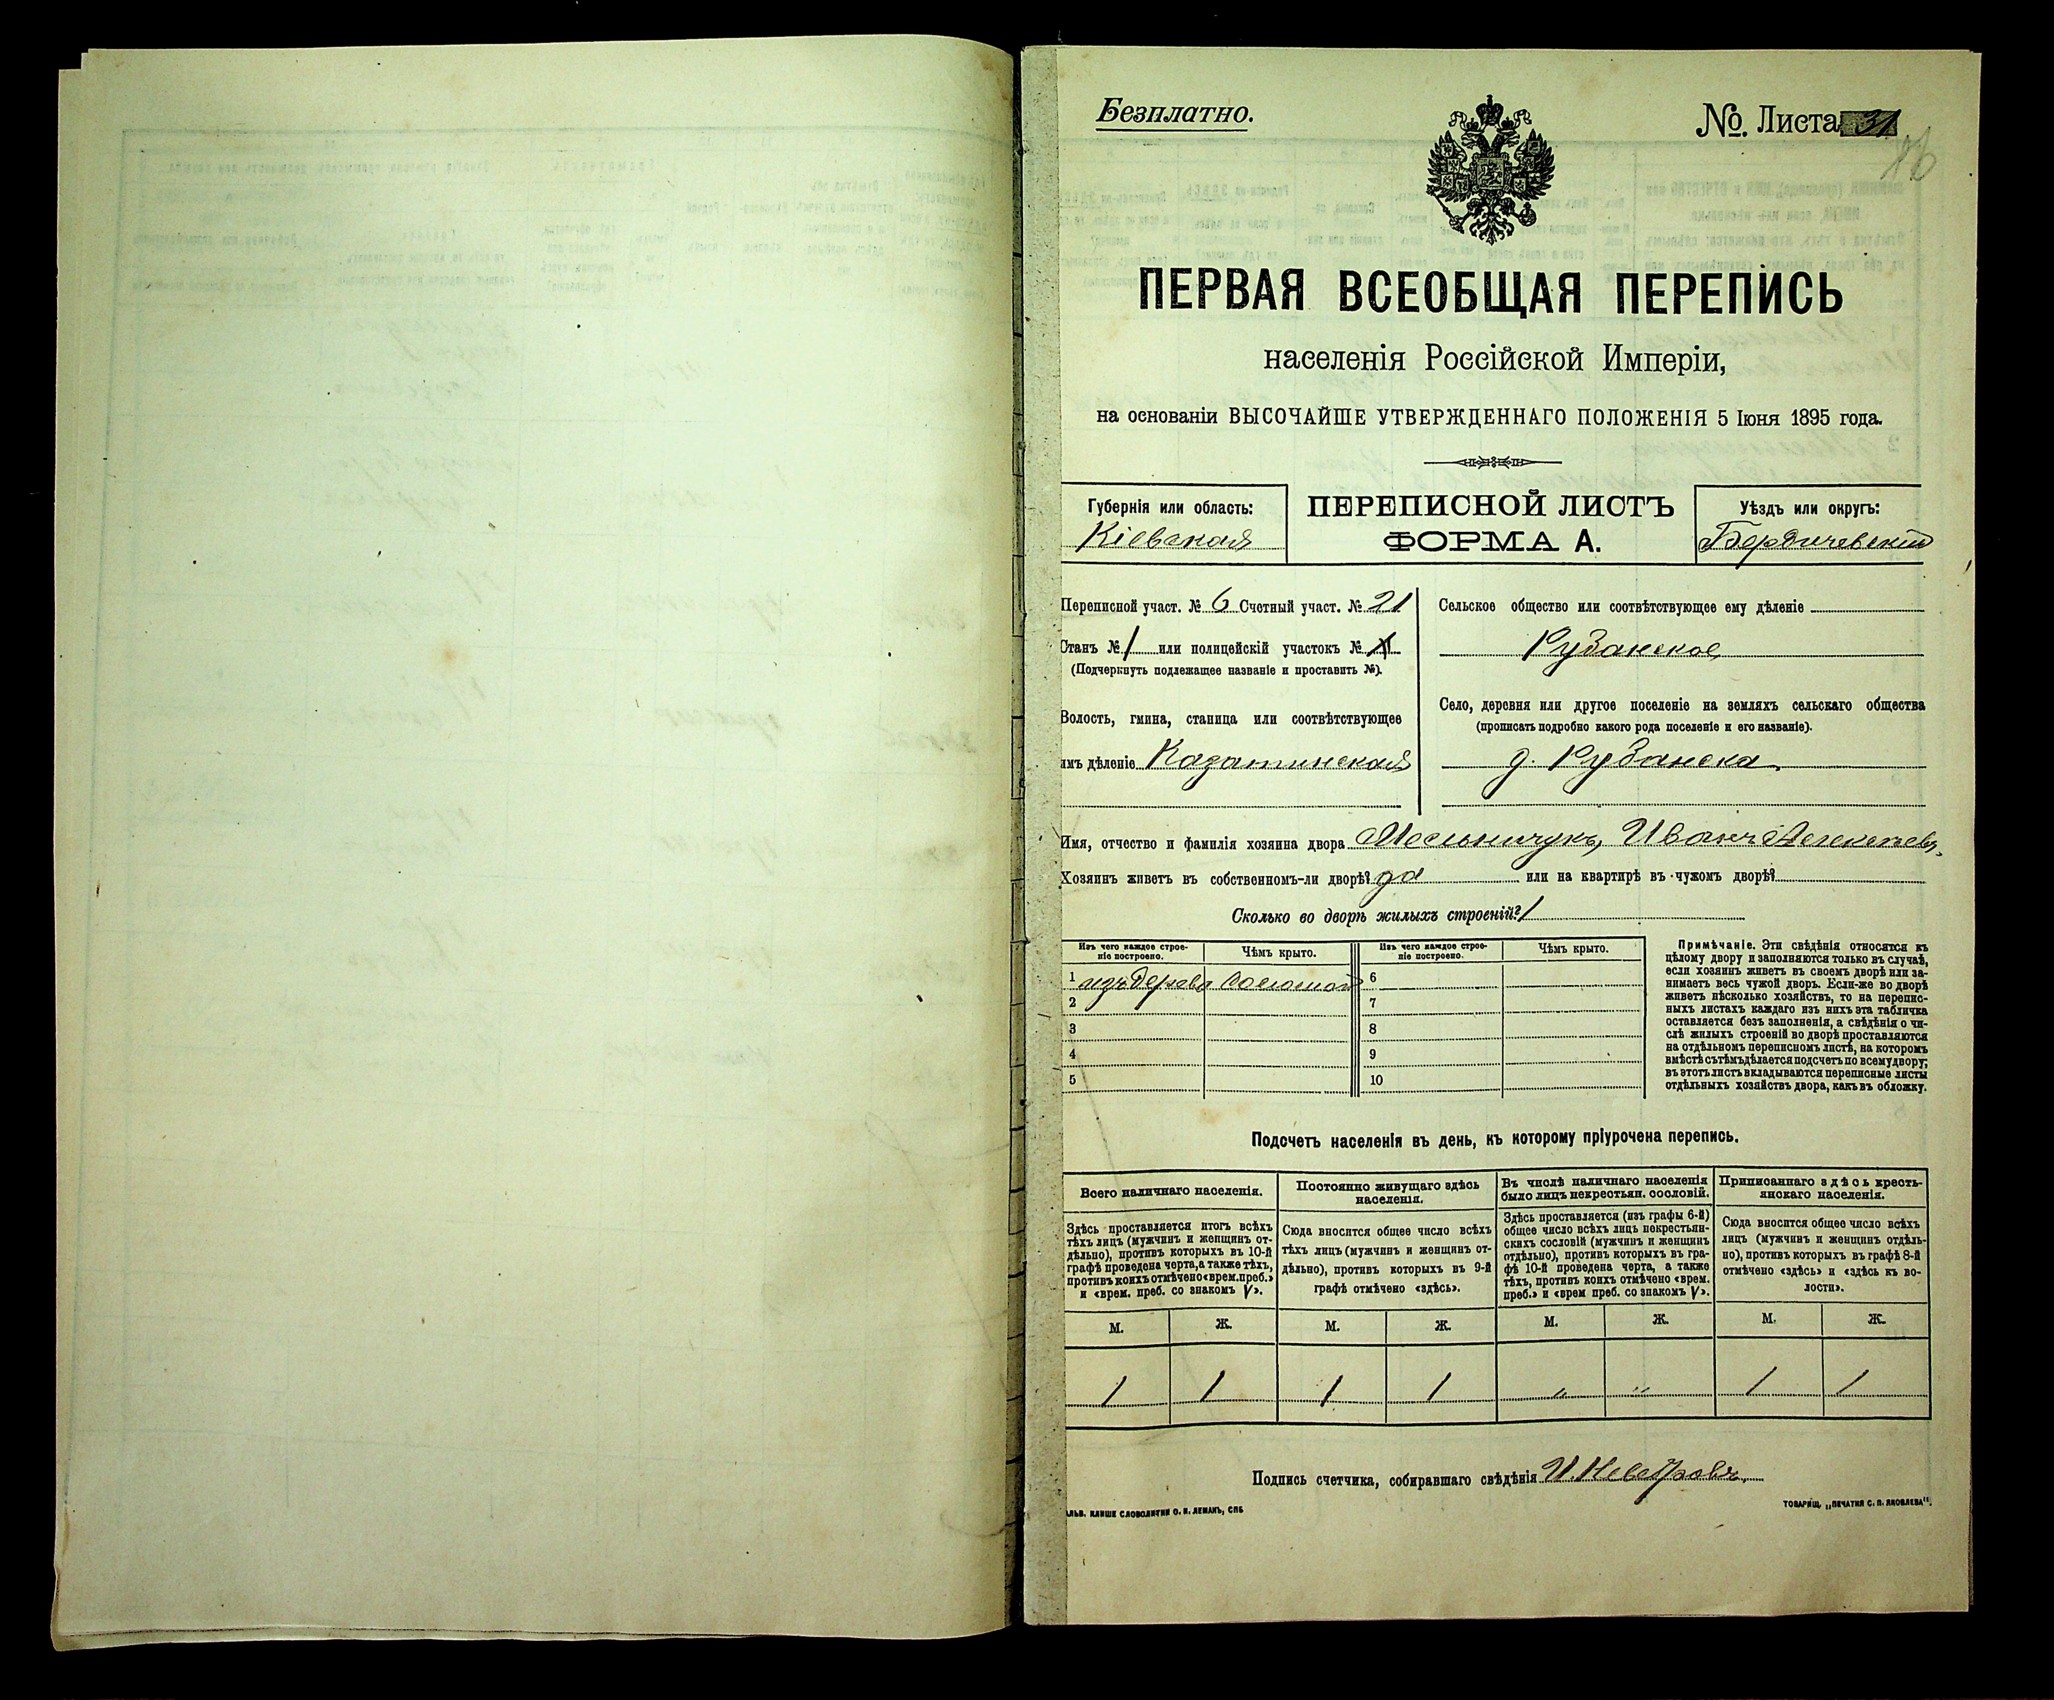 Безплатно.
№. Листа 31
ПЕРВАЯ ВСЕОБЩАЯ ПЕРЕПИСЬ
населенія Россійской Имперіи,
на основаніи ВЫСОЧАЙШЕ УТВЕРЖДЕННАГО ПОЛОЖЕНІЯ 5 Іюня 1895 года.
Губернія или область:
Кіевская
ПЕРЕПИСНОЙ ЛИСТЪ
ФОРМА А.
Уѣздъ или округъ:
Бердичевскій
Переписной участ. № 6 Счетный участ. № 21
Станъ № 1 или полицейскій участокъ №
(Подчеркнуть подлежащее названіе и проставить №).
Волость, гмина, станица или соотвѣтствующее
имъ дѣленіе Казатинская
Сельское общество или соотвѣтствующее ему дѣленіе
Рубанское
Село, деревня или другое поселеніе на земляхъ сельскаго общества
(прописать подробно какого рода поселеніе и его названіе).
д. Рубанска
Имя, отчество и фамилія хозяина двора Мельничукъ, Иванъ Алексѣевъ
Хозяинъ живетъ въ собственномъ-ли дворѣ? да или на квартирѣ въ чужомъ дворѣ?
Сколько во дворѣ жилыхъ строеній? 1
Изъ чего каждое строе-
ніе построено.
Чѣмъ крыто.
Изъ чего каждое строе-
ніе построено.
Чѣмъ крыто.
1 изъ дерева соломой 6
2 7
3 8
4 9
5 10
Примѣчаніе. Эти свѣдѣнія относятся къ
цѣлому двору и заполняются только въ случаѣ,
если хозяинъ живетъ въ своемъ дворѣ или за-
нимаетъ весь чужой дворъ. Если-же во дворѣ
живетъ нѣсколько хозяйствъ, то на перепис-
ныхъ листахъ каждаго изъ нихъ эта табличка
оставляется безъ заполненія, а свѣдѣнія о чи-
слѣ жилыхъ строеній во дворѣ проставляются
на отдѣльномъ переписномъ листѣ, на которомъ
вмѣстѣ съ тѣмъ дѣлается подсчетъ по всему двору;
въ этотъ листъ вкладываются переписные листы
отдѣльныхъ хозяйствъ двора, какъ въ обложку.
Подсчетъ населенія въ день, къ которому пріурочена перепись.
Всего наличнаго населенія.
Здѣсь проставляется итогъ всѣхъ
тѣхъ лицъ (мужчинъ и женщинъ от-
дѣльно), противъ которыхъ въ 10-й
графѣ проведена черта, а также тѣхъ,
противъ коихъ отмѣчено «врем. преб.»
и «врем. преб. со знакомъ V».
Постоянно живущаго здѣсь
населенія.
Сюда вносится общее число всѣхъ
тѣхъ лицъ (мужчинъ и женщинъ от-
дѣльно), противъ которыхъ въ 9-й
графѣ отмѣчено «здѣсь».
Въ числѣ наличнаго населенія
было лицъ некрестьян. сословій.
Здѣсь проставляется (изъ графы 6-й)
общее число всѣхъ лицъ некрестьян-
скихъ сословій (мужчинъ и женщинъ
отдѣльно), противъ которыхъ въ гра-
фѣ 10-й проведена черта, а также
тѣхъ, противъ коихъ отмѣчено «врем.
преб.» и «врем преб. со знакомъ V».
Приписаннаго здѣсь кресть-
янскаго населенія.
Сюда вносится общее число всѣхъ
лицъ (мужчинъ и женщинъ отдѣль-
но), противъ которыхъ въ графѣ 8-й
отмѣчено «здѣсь» и «здѣсь къ во-
лости».
М. Ж. М. Ж. М. Ж. М. Ж.
1 1 1 1 " " 1 1
Подпись счетчика, собиравшаго свѣдѣнія
АЛЬВ. КЛИШЕ СЛОВОЛИТНИ О. И. ЛЕМАНЪ, СПБ
ТОВАРИЩ. „ПЕЧАТНЯ С. П. ЯКОВЛЕВА".